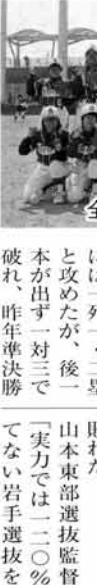 全
には一死一・二塁
と攻めたが、後一
本が出ず一対三で
破れ、昨年準決勝
敗れた
山本東部選抜監
「実力では一二〇%
てない岩手選抜を